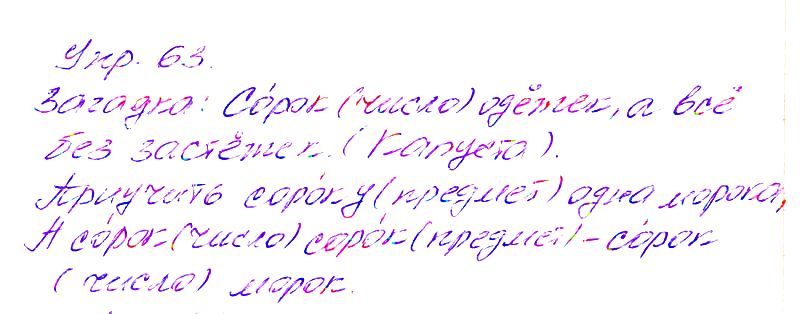 Упр. 63.
Загадка: Со́рок (число) одёжек, а всё
без застёжек. (Капуста).
Приучить соро́ку (предмет) одна морока,
А со́рок (число) соро́к (предмет) – со́рок
(число) морок.